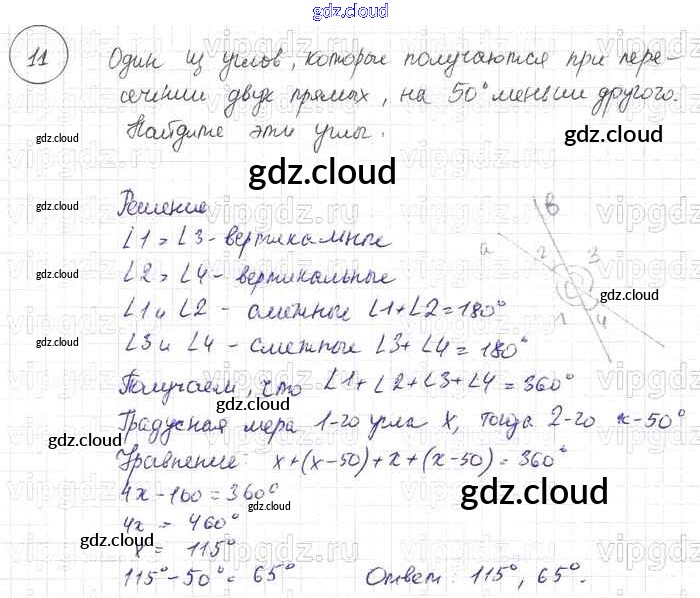 gdz.cloud
11 Один из углов, которые получаются при пере-
сечении двух прямых, на 50° меньше другого.
Найдите эти углы.
gdz.cloud
gdz.cloud
gdz.cloud
gdz.cloud
Решение
∠1 = ∠3 - вертикальные
∠2 = ∠4 - вертикальные
∠1 и ∠2 - смежные ∠1+∠2=180°
∠3 и ∠4 - смежные ∠3+∠4=180°
Получаем, что ∠1+∠2+∠3+∠4=360°
Градусная мера 1-го угла x, тогда 2-го x-50°
Уравнение: x+(x-50)+x+(x-50)=360°
4x-100=360°
4x = 460°
x = 115°
115°-50°=65° Ответ: 115°, 65°.
в
а
2 3
1 4
gdz.cloud
gdz.cloud
gdz.cloud
gdz.cloud
gdz.cloud
gdz.cloud
gdz.cloud
gdz.cloud
vipgdz.ru